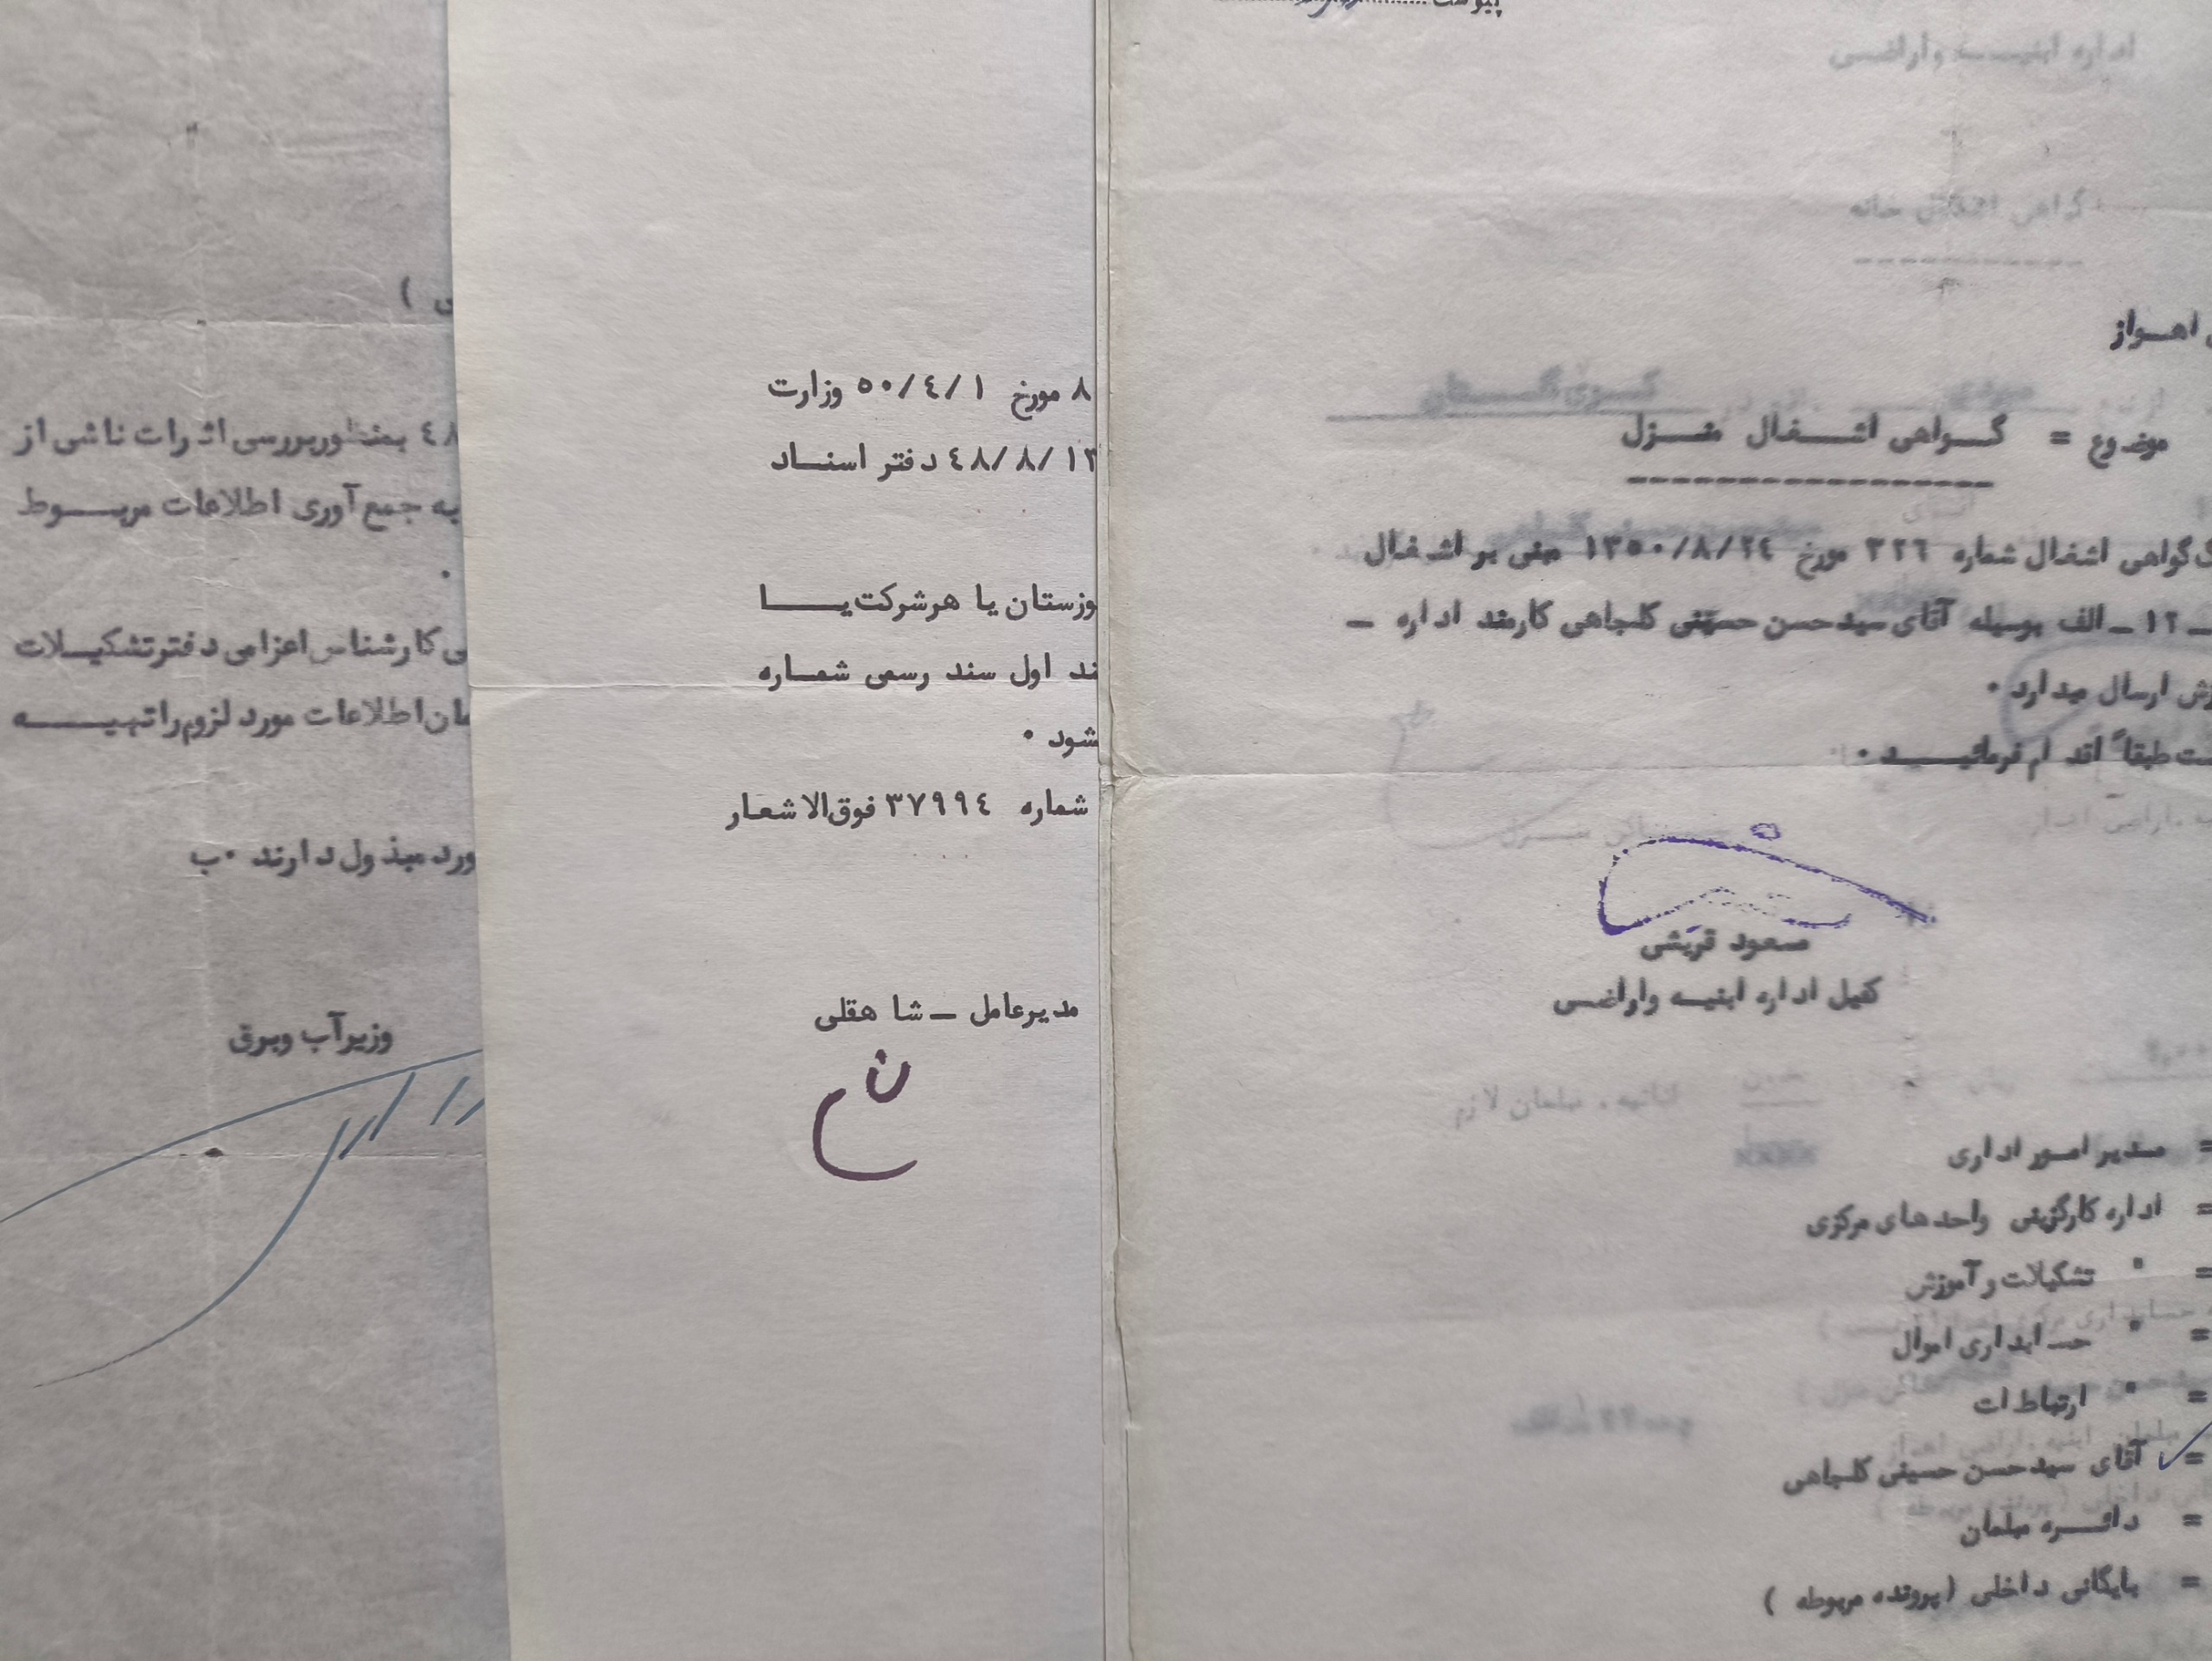 اداره ابنیه واراضی
گواهی اشغال خانه
اهواز
موضوع = گواهی اشغال منزل
گواهی اشغال شماره ۳۲۶ مورخ ۱۳۵۰/۸/۲۴ مبنی بر اشغال
۱۲ ــ الف بوسیله آقای سیدحسن حسینی کلجاهی کارمند اداره ــ
ارسال میدارد ۰
طبقاً اقدام فرمائید ۰
مسعود قریشی
کفیل اداره ابنیه واراضی
اثاثیه ، مبلمان لازم
= مدیر امور اداری
= اداره کارگزینی واحدهای مرکزی
= " تشکیلات و آموزش
= " حسابداری اموال
= " ارتباطات
= آقای سیدحسن حسینی کلجاهی
= دائره مبلمان
= بایگانی داخلی (پرونده مربوطه )
۸ مورخ ۵۰/۴/۱ وزارت
۴۸/۸/۱۲ دفتر اسناد
وزستان یا هرشرکت یا
ند اول سند رسمی شماره
شود ۰
شماره ۳۷۹۹۴ فوق‌الاشعار
مدیرعامل ــ شاهقلی
ی )
۴۸ بمنظوربررسی اثرات ناشی از
به جمع‌آوری اطلاعات مربوط
۰
ی کارشناس اعزامی دفترتشکیلات
مان اطلاعات مورد لزوم را تهیه
ورد مبذول دارند ۰ب
وزیرآب وبرق